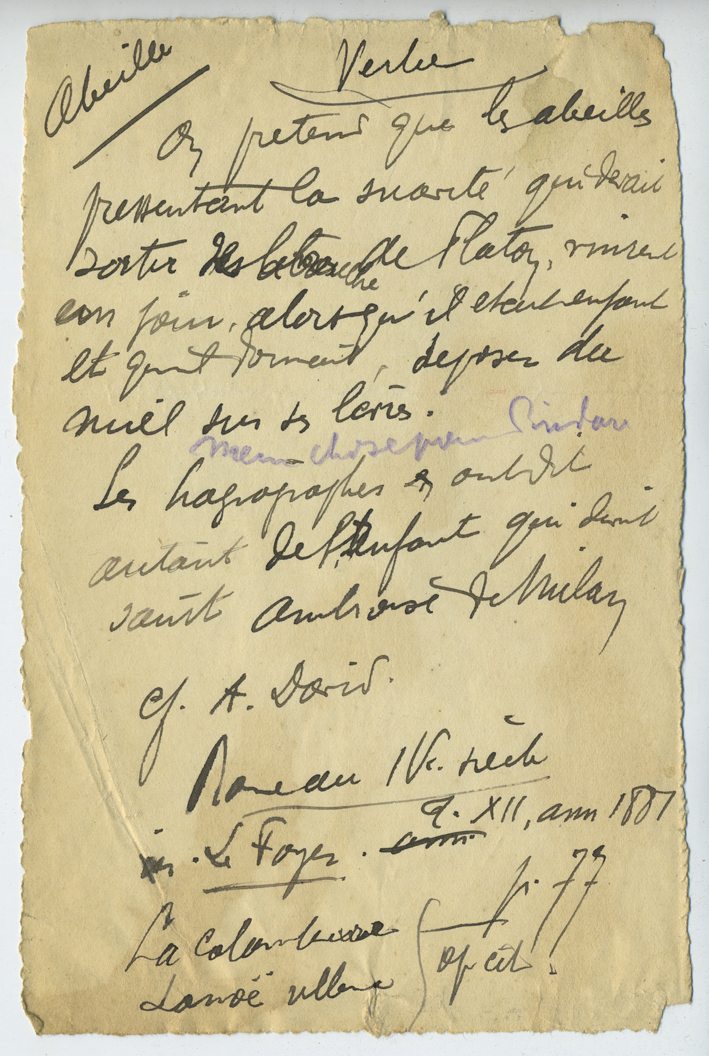 Abeille
Verbe
On pretend que les abeilles
pressentant la suavité qui devait
sortir de la bouche de Platon, vinrent
un jour, alors qu'il etait enfant
et qu'il dormait, deposer du
miel sur ses levres.
meme chose pour Pindare
Les hagiographes en ont dit
autant de l'Enfant qui devint
saint Ambroise de Milan
cf. A. David.
Rome au IVe. siècle
in. Le Foyer. ann. T. XII, ann 1881
p. 77
La colombiere
Lanoë villene
op cit.